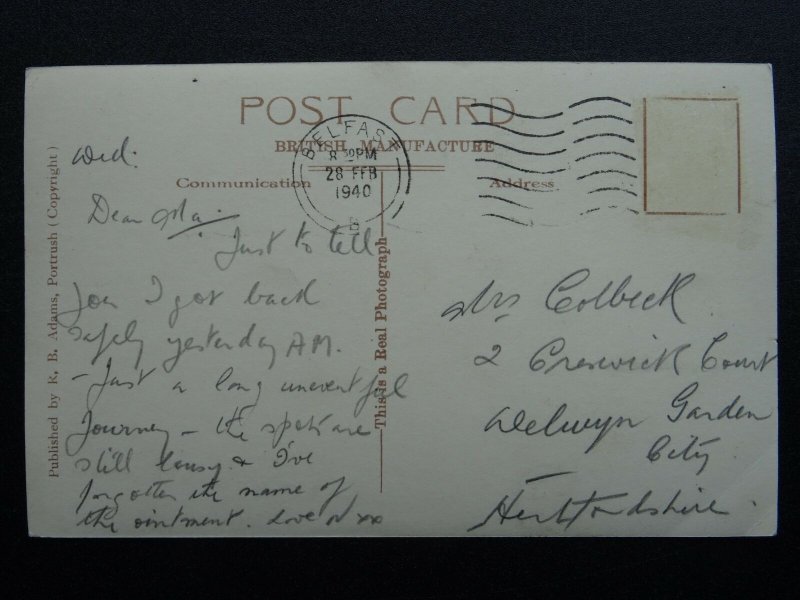 POST CARD
BRITISH MANUFACTURE
Communication
Address
BELFAST
8 30PM
28 FEB
1940
Published by R. B. Adams, Portrush (Copyright)
This is a Real Photograph
Wed:
Dear Ma.
Just to tell
you I got back
safely yesterday A.M.
- Just a long uneventful
Journey - the spots are
still lousy & I've
forgotten the name of
the ointment. Love xx
Mrs Colbeck.
2 Creswick Court
Welwyn Garden
City
Hertfordshire.